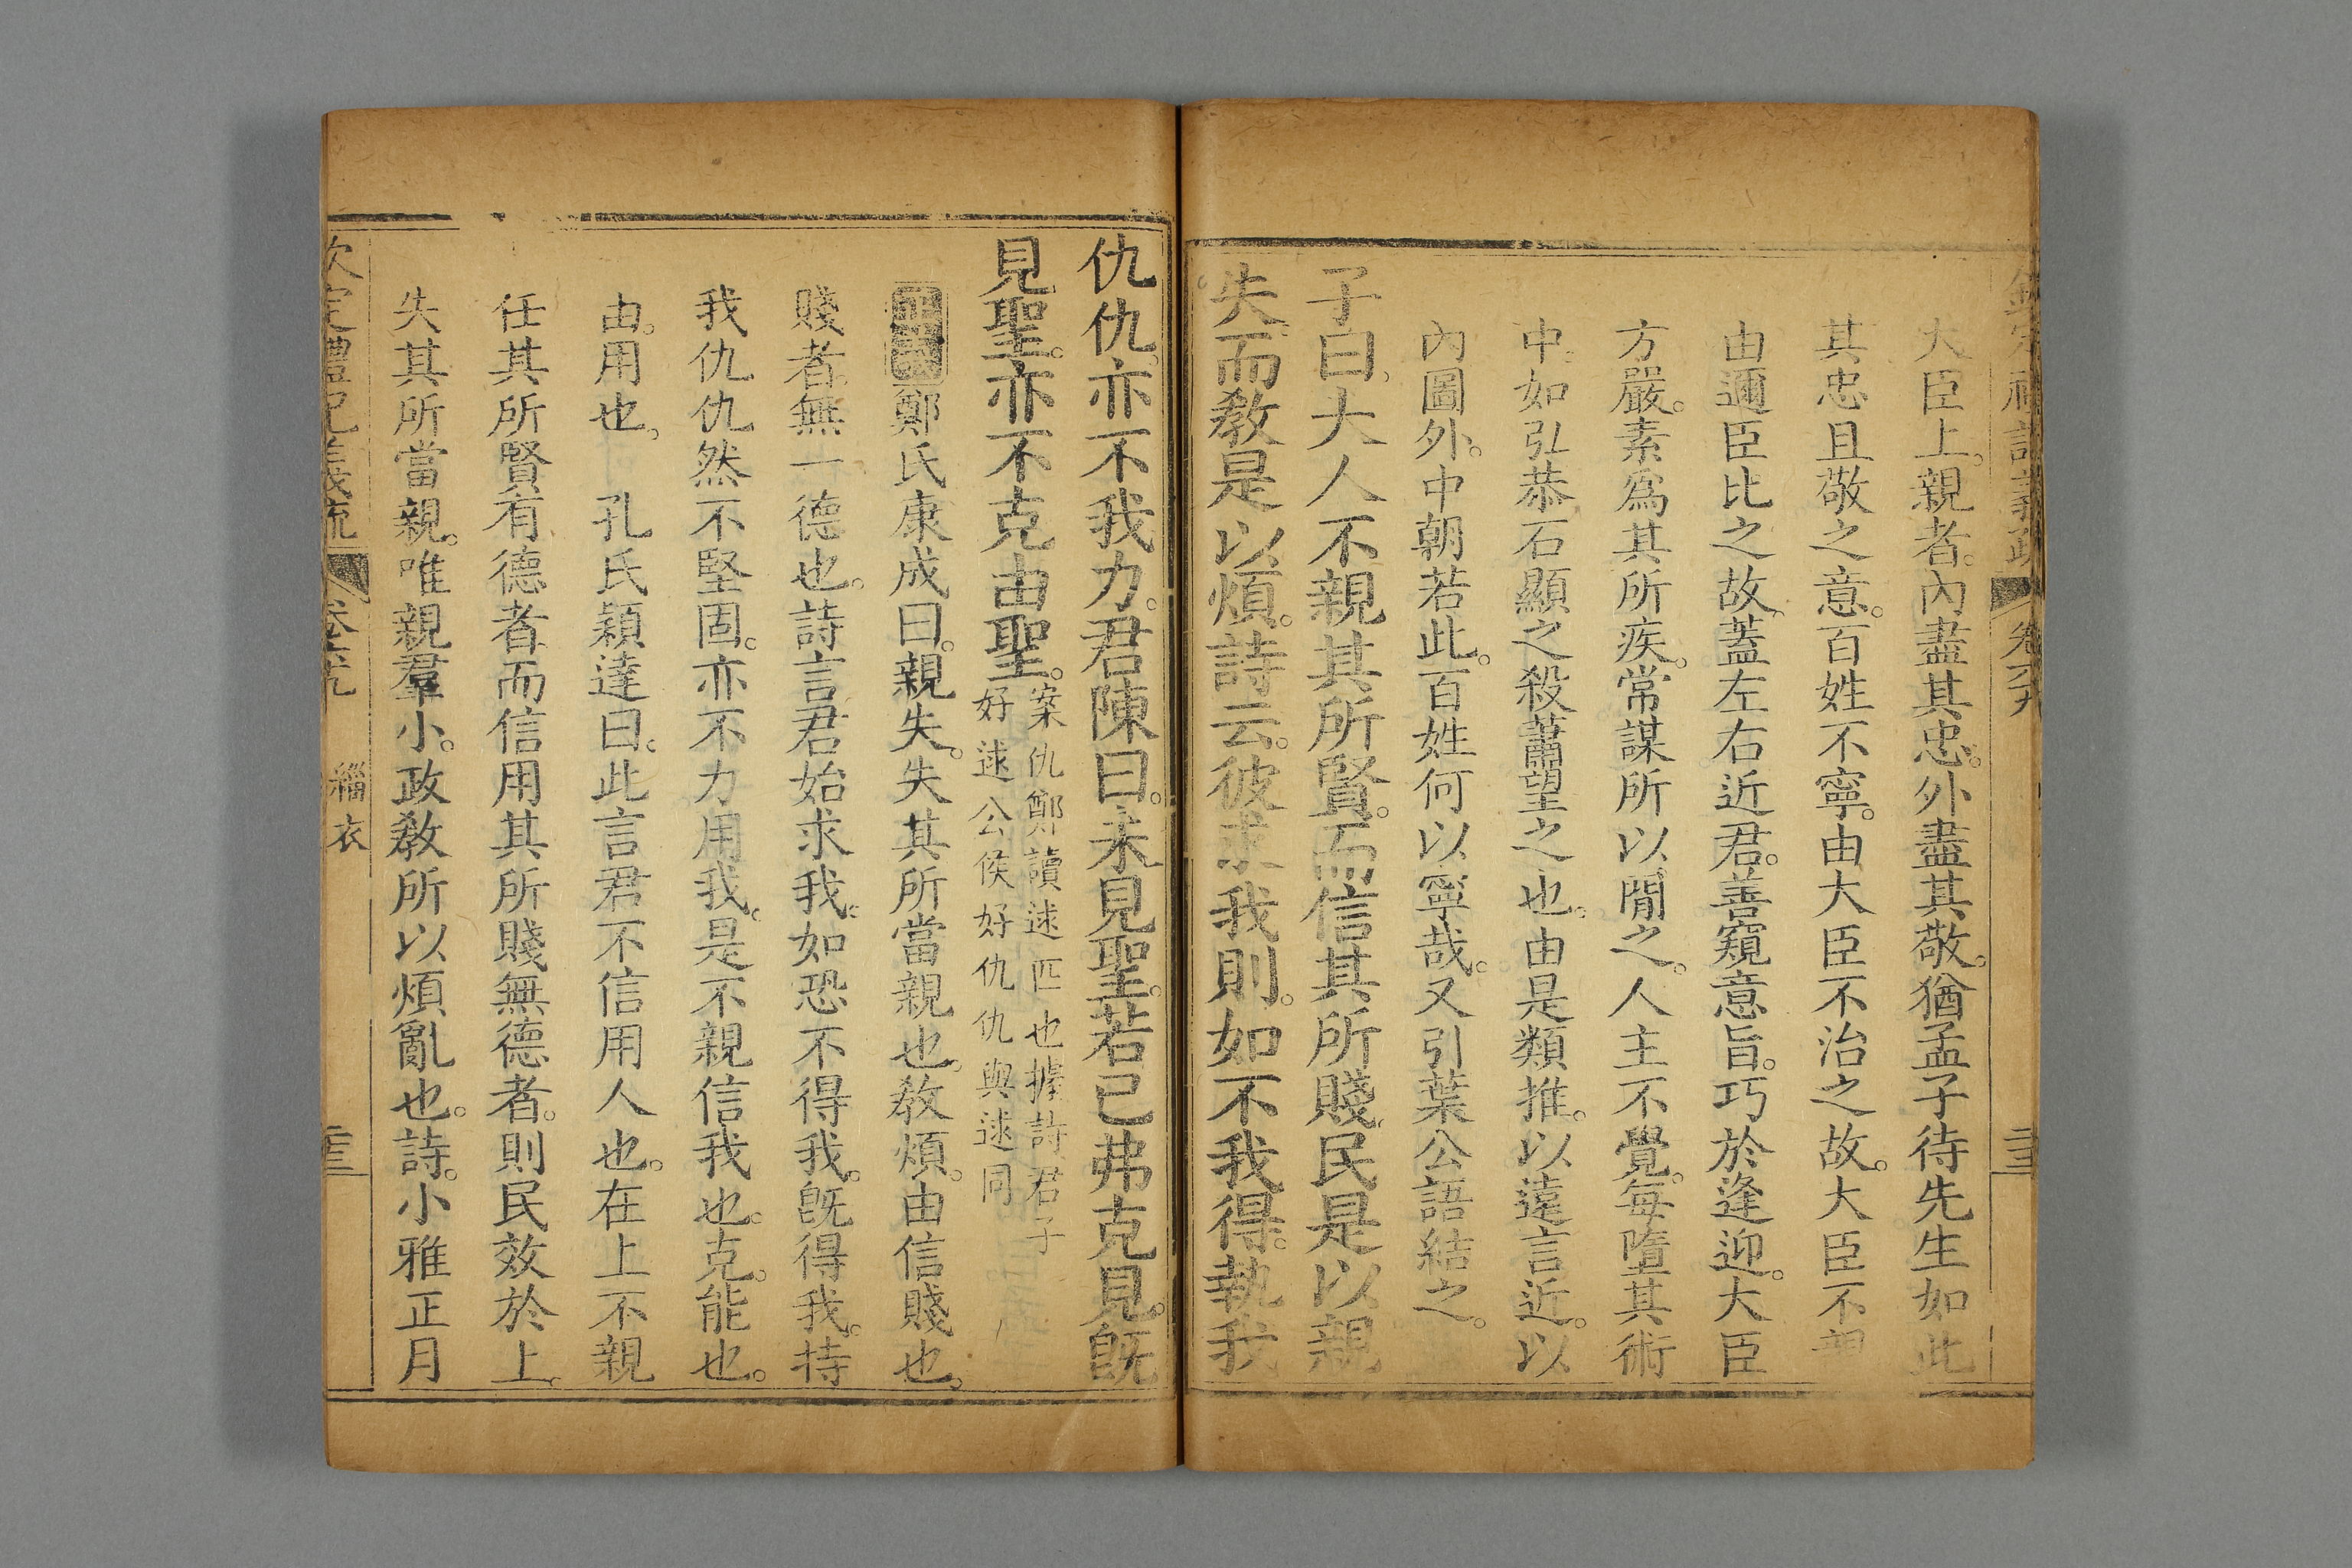 大臣上。親者。內盡其忠。外盡其敬。猶孟子待先生如此
其忠且敬之意。百姓不寧。由大臣不治之故。大臣不親
由邇臣比之故。蓋左右近君。善窺意旨。巧於逢迎。大臣
方嚴。素爲其所疾。常謀所以閒之。人主不覺。每墮其術
中。如弘恭石顯之殺蕭望之也。由是類推。以遠言近。以
內圖外。中朝若此。百姓何以寧哉。又引葉公語結之。
子曰。大人不親其所賢。而信其所賤。民是以親
失。而敎是以煩。詩云。彼求我則。如不我得。執我
仇仇。亦不我力。君陳曰。未見聖。若己弗克見。旣
見聖。亦不克由聖。
案仇鄭讀逑匹也據詩君子
好逑公侯好仇仇與逑同
鄭氏康成曰。親失。失其所當親也。敎煩。由信賤也。
賤者。無一德也。詩言君始求我。如恐不得我。旣得我。持
我仇仇然不堅固。亦不力用我。是不親信我也。克。能也。
由。用也。 孔氏穎達曰。此言君不信用人也。在上不親
任其所賢有德者。而信用其所賤無德者。則民效於上。
失其所當親。唯親羣小。政敎所以煩亂也。詩。小雅正月
欽定禮記義疏 卷六九 緇衣 三三